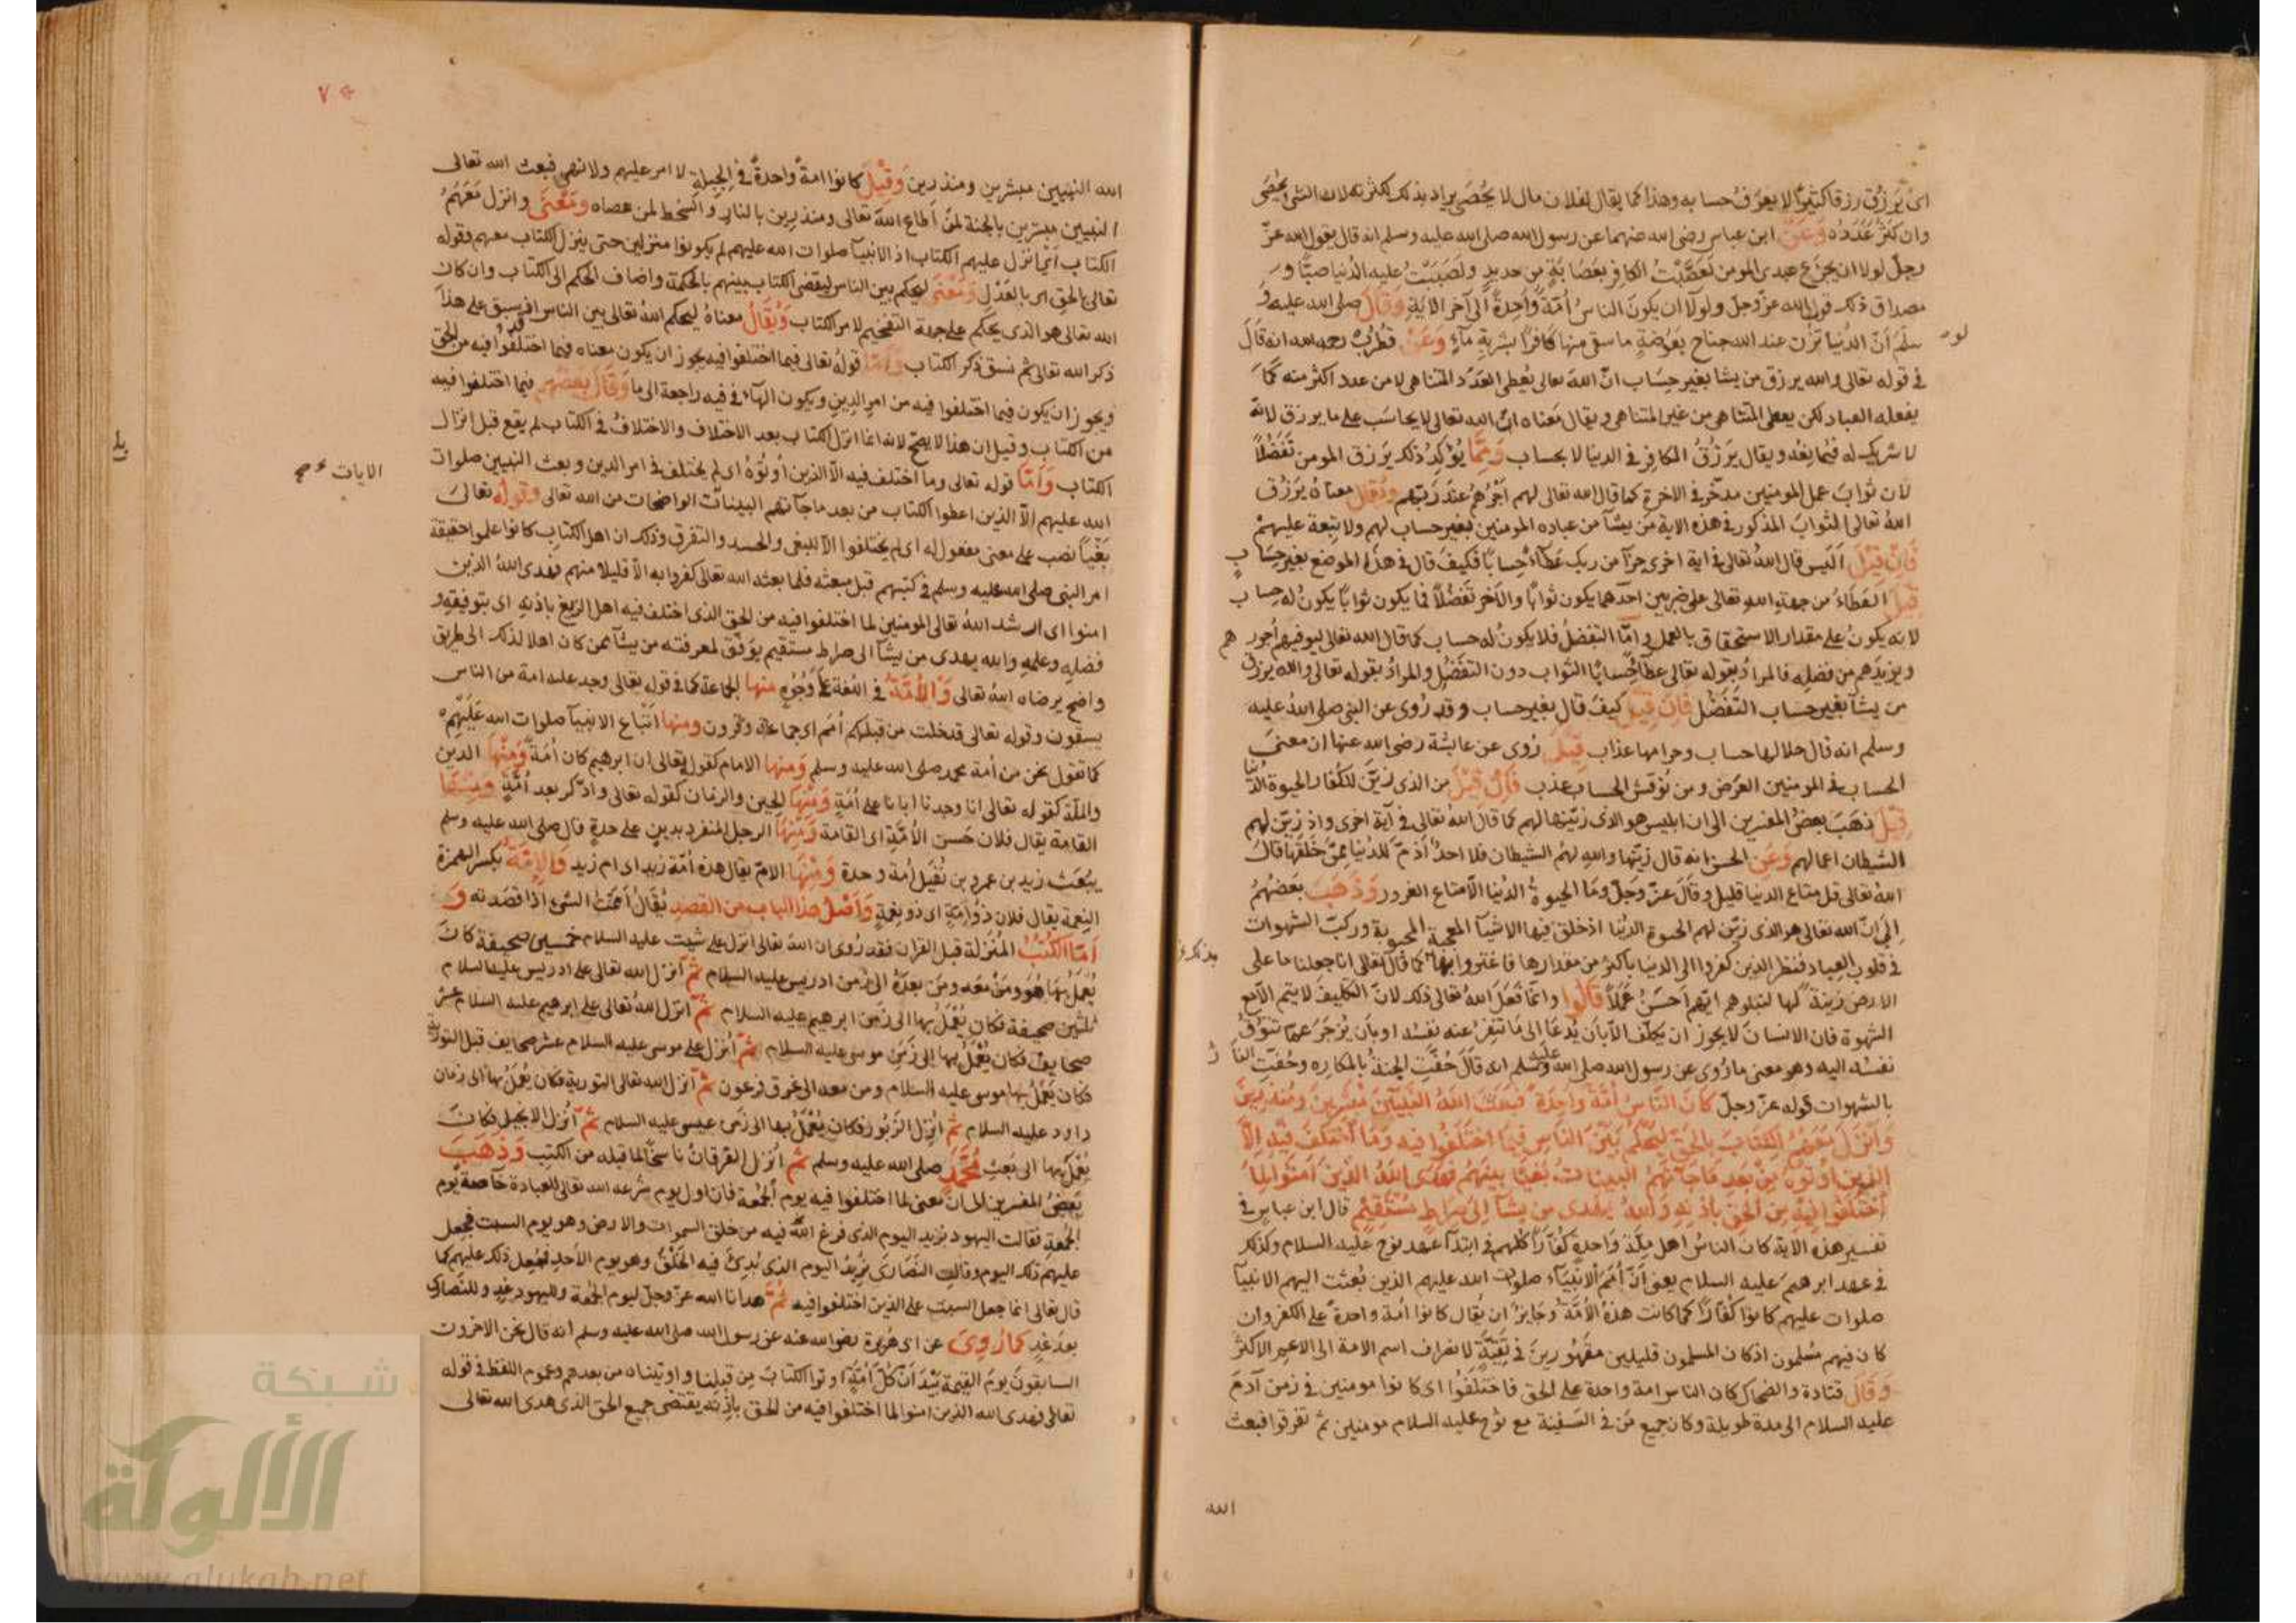 اى يرزق رزقا كثيرا لا يعرف حسابه وهذا كما يقال لفلان مال لا يحصى يراد بذلك كثرته لان الشئ يحصى
وان كثر عدده وعن ابن عباس رضى الله عنهما عن رسول الله صلى الله عليه وسلم انه قال يقول الله عز
وجل لولا ان يجزع عبدى المومن لعصبت الكافر بعصابة من حديد ولصببت عليه الدنيا صبا و
مصداق ذلك قول الله عز وجل ولولا ان يكون الناس أمة واحدة الى آخر الاية وقال صلى الله عليه و
سلم لو أن الدنيا تزن عند الله جناح بعوضة ما سقى منها كافرا بشربة مآء وعن قطرب رحمه الله انه قال
فى قوله تعالى والله يرزق من يشا بغير حساب ان الله تعالى يعطى العدد المتناهى لا من عدد اكثر منه كما
يفعله العباد لكن يعطى المتناهى من غير المتناهى ويقال معناه ان الله تعالى لا يحاسب على ما يرزق لانه
لا شريك له فيمانعه ويقال يرزق الكافر فى الدنيا لا بحساب ومما يؤكد ذلك يرزق المومن تفضلا
لان ثواب عمل المومنين مدخر فى الاخرة كما قال الله تعالى لهم اجرهم عند ربهم ويقال معناه يرزق
الله تعالى الثواب المذكور فى هذه الاية من يشآ من عباده المومنين بغير حساب لهم ولا تبعة عليهم
فان قيل أليس قال الله تعالى فى اية اخرى جزآ من ربك عطآء حسابا فكيف قال فى هذا الموضع بغير حساب
قيل العطآء من جهة الله تعالى على ضربين احدهما يكون ثوابا والآخر تفضلا فما يكون ثوابا يكون له حساب
لانه يكون على مقدار الاستحقاق بالعمل واما التفضل فلا يكون له حساب كما قال الله تعالى ليوفيهم اجورهم
ويزيدهم من فضله فالمراد بقوله تعالى عطآء حسابا الثواب دون التفضل والمراد بقوله تعالى والله يرزق
من يشآ بغير حساب التفضل فان قيل كيف قال بغير حساب وقد روى عن النبى صلى الله عليه
وسلم انه قال حلالها حساب وحرامها عذاب قيل روى عن عايشة رضى الله عنها ان معنى
الحساب فى المومنين العرض ومن نوقش الحساب عذب فان قيل من الذى زين للكفار الحيوة الدنيا
قيل ذهب بعض المفسرين الى ان ابليس هو الذى زينها لهم كما قال الله تعالى فى آية اخرى واذ زين لهم
الشيطان اعمالهم وعن الحسن انه قال زينها والله لهم الشيطان فلا احد أذم للدنيا ممن خلقها قال
الله تعالى قل متاع الدنيا قليل وقال عز وجل وما الحيوة الدنيا الا متاع الغرور وذهب بعضهم
الى ان الله تعالى هو الذى زين لهم الحيوة الدنيا اذ خلق فيها الاشيآ المعجبة المحبوبة وركب الشهوات
فى قلوب العباد فنظر الذين كفروا الى الدنيا باكثر من مقدارها فاغتروا بها كما قال تعالى انا جعلنا ما على
الارض زينة لها لنبلوهم ايهم احسن عملا قالوا وانما فعل الله تعالى ذلك لان التكليف لا يتم الا مع
الشهوة فان الانسان لا يجوز ان يكلف الا بان يدعا الى ما تنفر عنه نفسه او بان يزجر عما تتوق
نفسه اليه وهو معنى ما روى عن رسول الله صلى الله عليه وسلم انه قال حفت الجنة بالمكاره وحفت النار
بالشهوات قوله عز وجل كان الناس امة واحدة فبعث الله النبيين مبشرين ومنذرين
وانزل معهم الكتاب بالحق ليحكم بين الناس فيما اختلفوا فيه وما اختلف فيه الا
الذين اوتوه من بعد ما جآتهم البينات بغيا بينهم فهدى الله الذين آمنوا لما
اختلفوا فيه من الحق باذنه والله يهدى من يشآ الى صراط مستقيم قال ابن عباس فى
تفسير هذه الاية كان الناس اهل ملة واحدة كفارا كلهم فى ابتدآ عهد نوح عليه السلام وكذلك
فى عهد ابرهيم عليه السلام يعنى أن أمم الانبيآء صلوات الله عليهم الذين بعثت اليهم الانبيآ
صلوات عليهم كانوا كفارا كما كانت هذه الامة وجايز ان يقال كانوا امة واحدة على الكفر وان
كان فيهم مسلمون اذ كان المسلمون قليلين مقهورين فى تقية لانصراف اسم الامة الى الاعم الاكثر
وقال قتادة والضحاك كان الناس امة واحدة على الحق فاختلفوا اى كانوا مومنين فى زمن آدم
عليه السلام الى مدة طويلة وكان جميع من فى السفينة مع نوح عليه السلام مومنين ثم تفرقوا فبعث
الله
الله النبيين مبشرين ومنذرين وقيل كانوا امة واحدة فى الجبلة لا امر عليهم ولا نهى فبعث الله تعالى
النبيين مبشرين بالجنة لمن أطاع الله تعالى ومنذرين بالنار والسخط لمن عصاه ومعنى وانزل معهم
الكتاب أى انزل عليهم الكتاب اذ الانبيآ صلوات الله عليهم لم يكونوا منزلين حتى ينزل الكتاب معهم وقوله
تعالى بالحق اى بالعدل ومعنى ليحكم بين الناس ليقضى الكتاب بينهم بالحكمة واضاف الحكم الى الكتاب وان كان
الله تعالى هو الذى يحكم على جهة التفخيم لامر الكتاب ويقال معناه ليحكم الله تعالى بين الناس اذ سبق على هذا
ذكر الله تعالى ثم نسق ذكر الكتاب واما قوله تعالى فيما اختلفوا فيه يجوز ان يكون معناه فيما اختلفوا فيه من الحق
ويجوز ان يكون فيما اختلفوا فيه من امر الدين ويكون الهآء فى فيه راجعة الى ما وقال بعضهم فيما اختلفوا فيه
من الكتاب وقيل ان هذا لا يصح لانه انما انزل الكتاب بعد الاختلاف والاختلاف فى الكتاب لم يقع قبل انزال
الكتاب وأما قوله تعالى وما اختلف فيه الا الذين أوتوه اى لم يختلف فى امر الدين وبعث النبيين صلوات
الله عليهم إلا الذين اعطوا الكتاب من بعد ما جآتهم البينات الواضحات من الله تعالى وقوله تعالى
بغيا نصب على معنى مفعول له اى لم يختلفوا الا للبغى والحسد والتفرق وذلك ان اهل الكتاب كانوا علموا حقيقة
امر النبى صلى الله عليه وسلم فى كتبهم قبل مبعثه فلما بعثه الله تعالى كفروا به الا قليلا منهم فهدى الله الذين
امنوا اى ارشد الله تعالى المومنين لما اختلفوا فيه من الحق الذى اختلف فيه اهل الزيغ باذنه اى بتوفيقه و
فضله وعلمه والله يهدى من يشآ الى صراط مستقيم يوفق لمعرفته من يشآ ممن كان اهلا لذلك الى طريق
واضح يرضاه الله تعالى والأمة فى اللغة على وجوه منها الجماعة كما فى قوله تعالى وجد عليه امة من الناس
يسقون وقوله تعالى قد خلت من قبلكم أمم اى جماعات وقرون ومنها اتباع الانبيآ صلوات الله عليهم
كما تقول نحن من أمة محمد صلى الله عليه وسلم ومنها الامام كقوله تعالى ان ابرهيم كان أمة ومنها الدين
والملة كقوله تعالى انا وجدنا ابانا على امة ومنها الحين والزمان كقوله تعالى وادكر بعد أمة ومنها
القامة يقال فلان حسن الأمة اى القامة ومنها الرجل المنفرد بدين على حدة قال صلى الله عليه وسلم
يبعث زيد بن عمرو بن نفيل أمة وحدة ومنها الام يقال هذه أمة زيد اى ام زيد والإمة بكسر الهمزة
النعمة يقال فلان ذو امة اى ذو نعمة واصل هذا الباب من القصد يقال أممت الشئ اذا قصدته و
أما الكتب المنزلة قبل القران فقد روى ان الله تعالى انزل على شيث عليه السلام خمسين صحيفة كان
يعمل بها هو ومن معه ومن بعده الى زمن ادريس عليه السلام ثم أنزل الله تعالى على ادريس عليه السلام
ثلثين صحيفة فكان يعمل بها الى زمن ابرهيم عليه السلام ثم انزل الله تعالى على ابرهيم عليه السلام عشر
صحايف فكان يعمل بها الى زمن موسى عليه السلام ثم أنزل على موسى عليه السلام عشر صحايف قبل التورية
فكان يعمل بها موسى عليه السلام ومن معه الى غرق فرعون ثم أنزل الله تعالى التورية فكان يعمل بها الى زمان
داود عليه السلام ثم أنزل الزبور فكان يعمل بها الى زمن عيسى عليه السلام ثم أنزل الانجيل فكان
يعمل بها الى بعث محمد صلى الله عليه وسلم ثم أنزل الفرقان ناسخا لما قبله من الكتب وذهب
بعض المفسرين الى ان معنى لما اختلفوا فيه يوم الجمعة فان اول يوم شرعه الله تعالى للعبادة خاصة يوم
الجمعة فقالت اليهود نريد اليوم الذى فرغ الله فيه من خلق السموات والارض وهو يوم السبت فجعل
عليهم ذلك اليوم وقالت النصارى نريد اليوم الذى بدئ فيه الخلق وهو يوم الأحد فجعل ذلك عليهم كما
قال تعالى انما جعل السبت على الذين اختلفوا فيه ثم هدانا الله عز وجل ليوم الجمعة ولليهود غد وللنصارى
بعد غد كما روى عن ابى هريرة رضى الله عنه عن رسول الله صلى الله عليه وسلم انه قال نحن الاخرون
السابقون يوم القيمة بيد أن كل أمة اوتوا الكتاب من قبلنا واوتيناه من بعدهم وعموم اللفظ فى قوله
تعالى فهدى الله الذين امنوا لما اختلفوا فيه من الحق باذنه يقتضى جميع الحق الذى هدى الله تعالى
الايات صح
شبكة
الألوكة
www.alukah.net